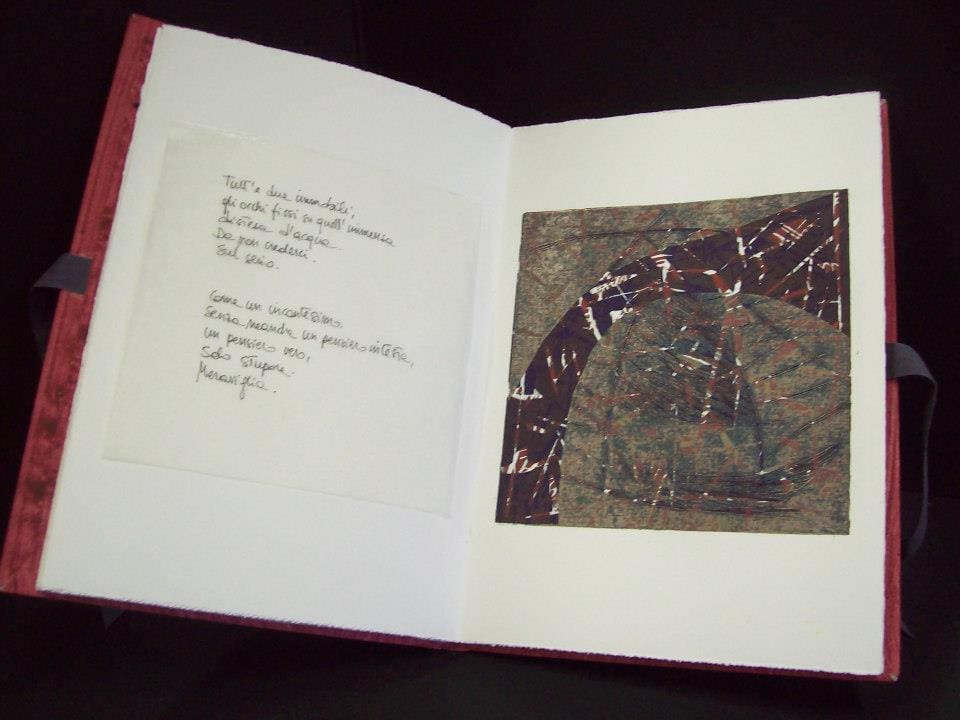 Tutt'e due immobili,
gli occhi fissi su quell'immensa
distesa d'acqua.
Da non crederci.
Sul serio.
Come un incantesimo.
Senza neanche un pensiero in testa,
un pensiero vero,
Solo stupore.
Meraviglia.